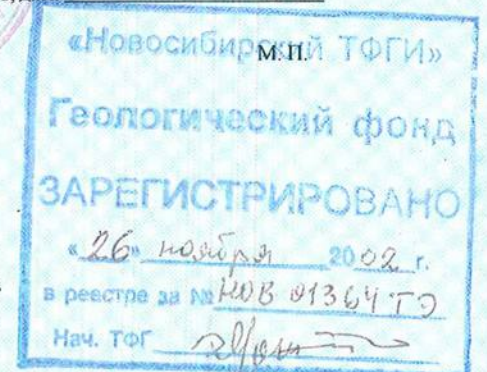 М.П.
«Новосибирский ТФГИ»
Геологический фонд
ЗАРЕГИСТРИРОВАНО
«26» ноября 2002 г.
в реестре за № НОВ 01364 ТЭ
Нач. ТФГ